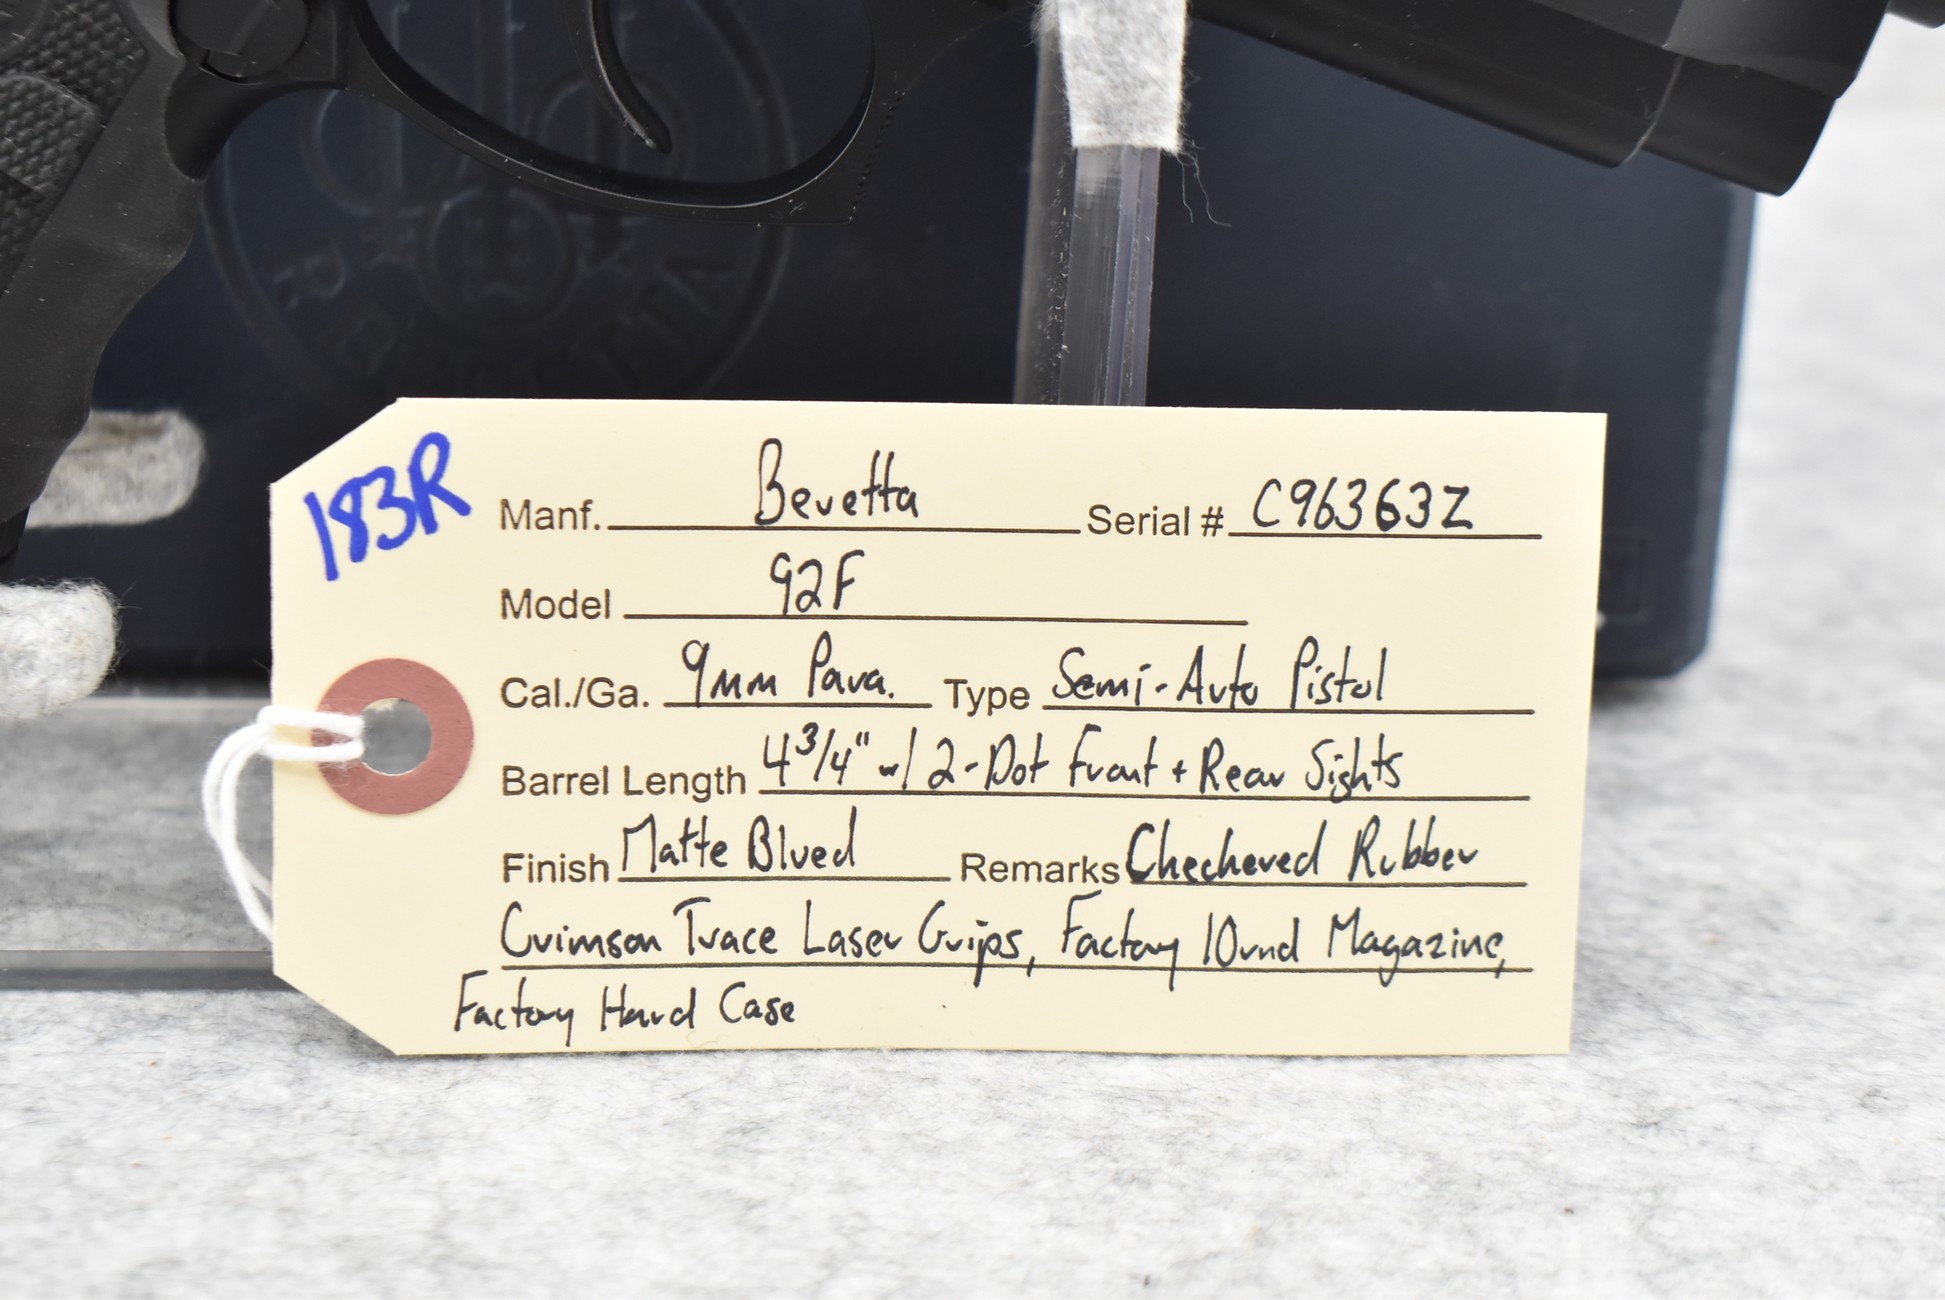 183R
Manf. Beretta Serial # C96363Z
Model 92F
Cal./Ga. 9mm Para. Type Semi-Auto Pistol
Barrel Length 4 3/4" w/ 2-Dot Front + Rear Sights
Finish Matte Blued Remarks Checkered Rubber
Crimson Trace Laser Grips, Factory 10rnd Magazine,
Factory Hard Case